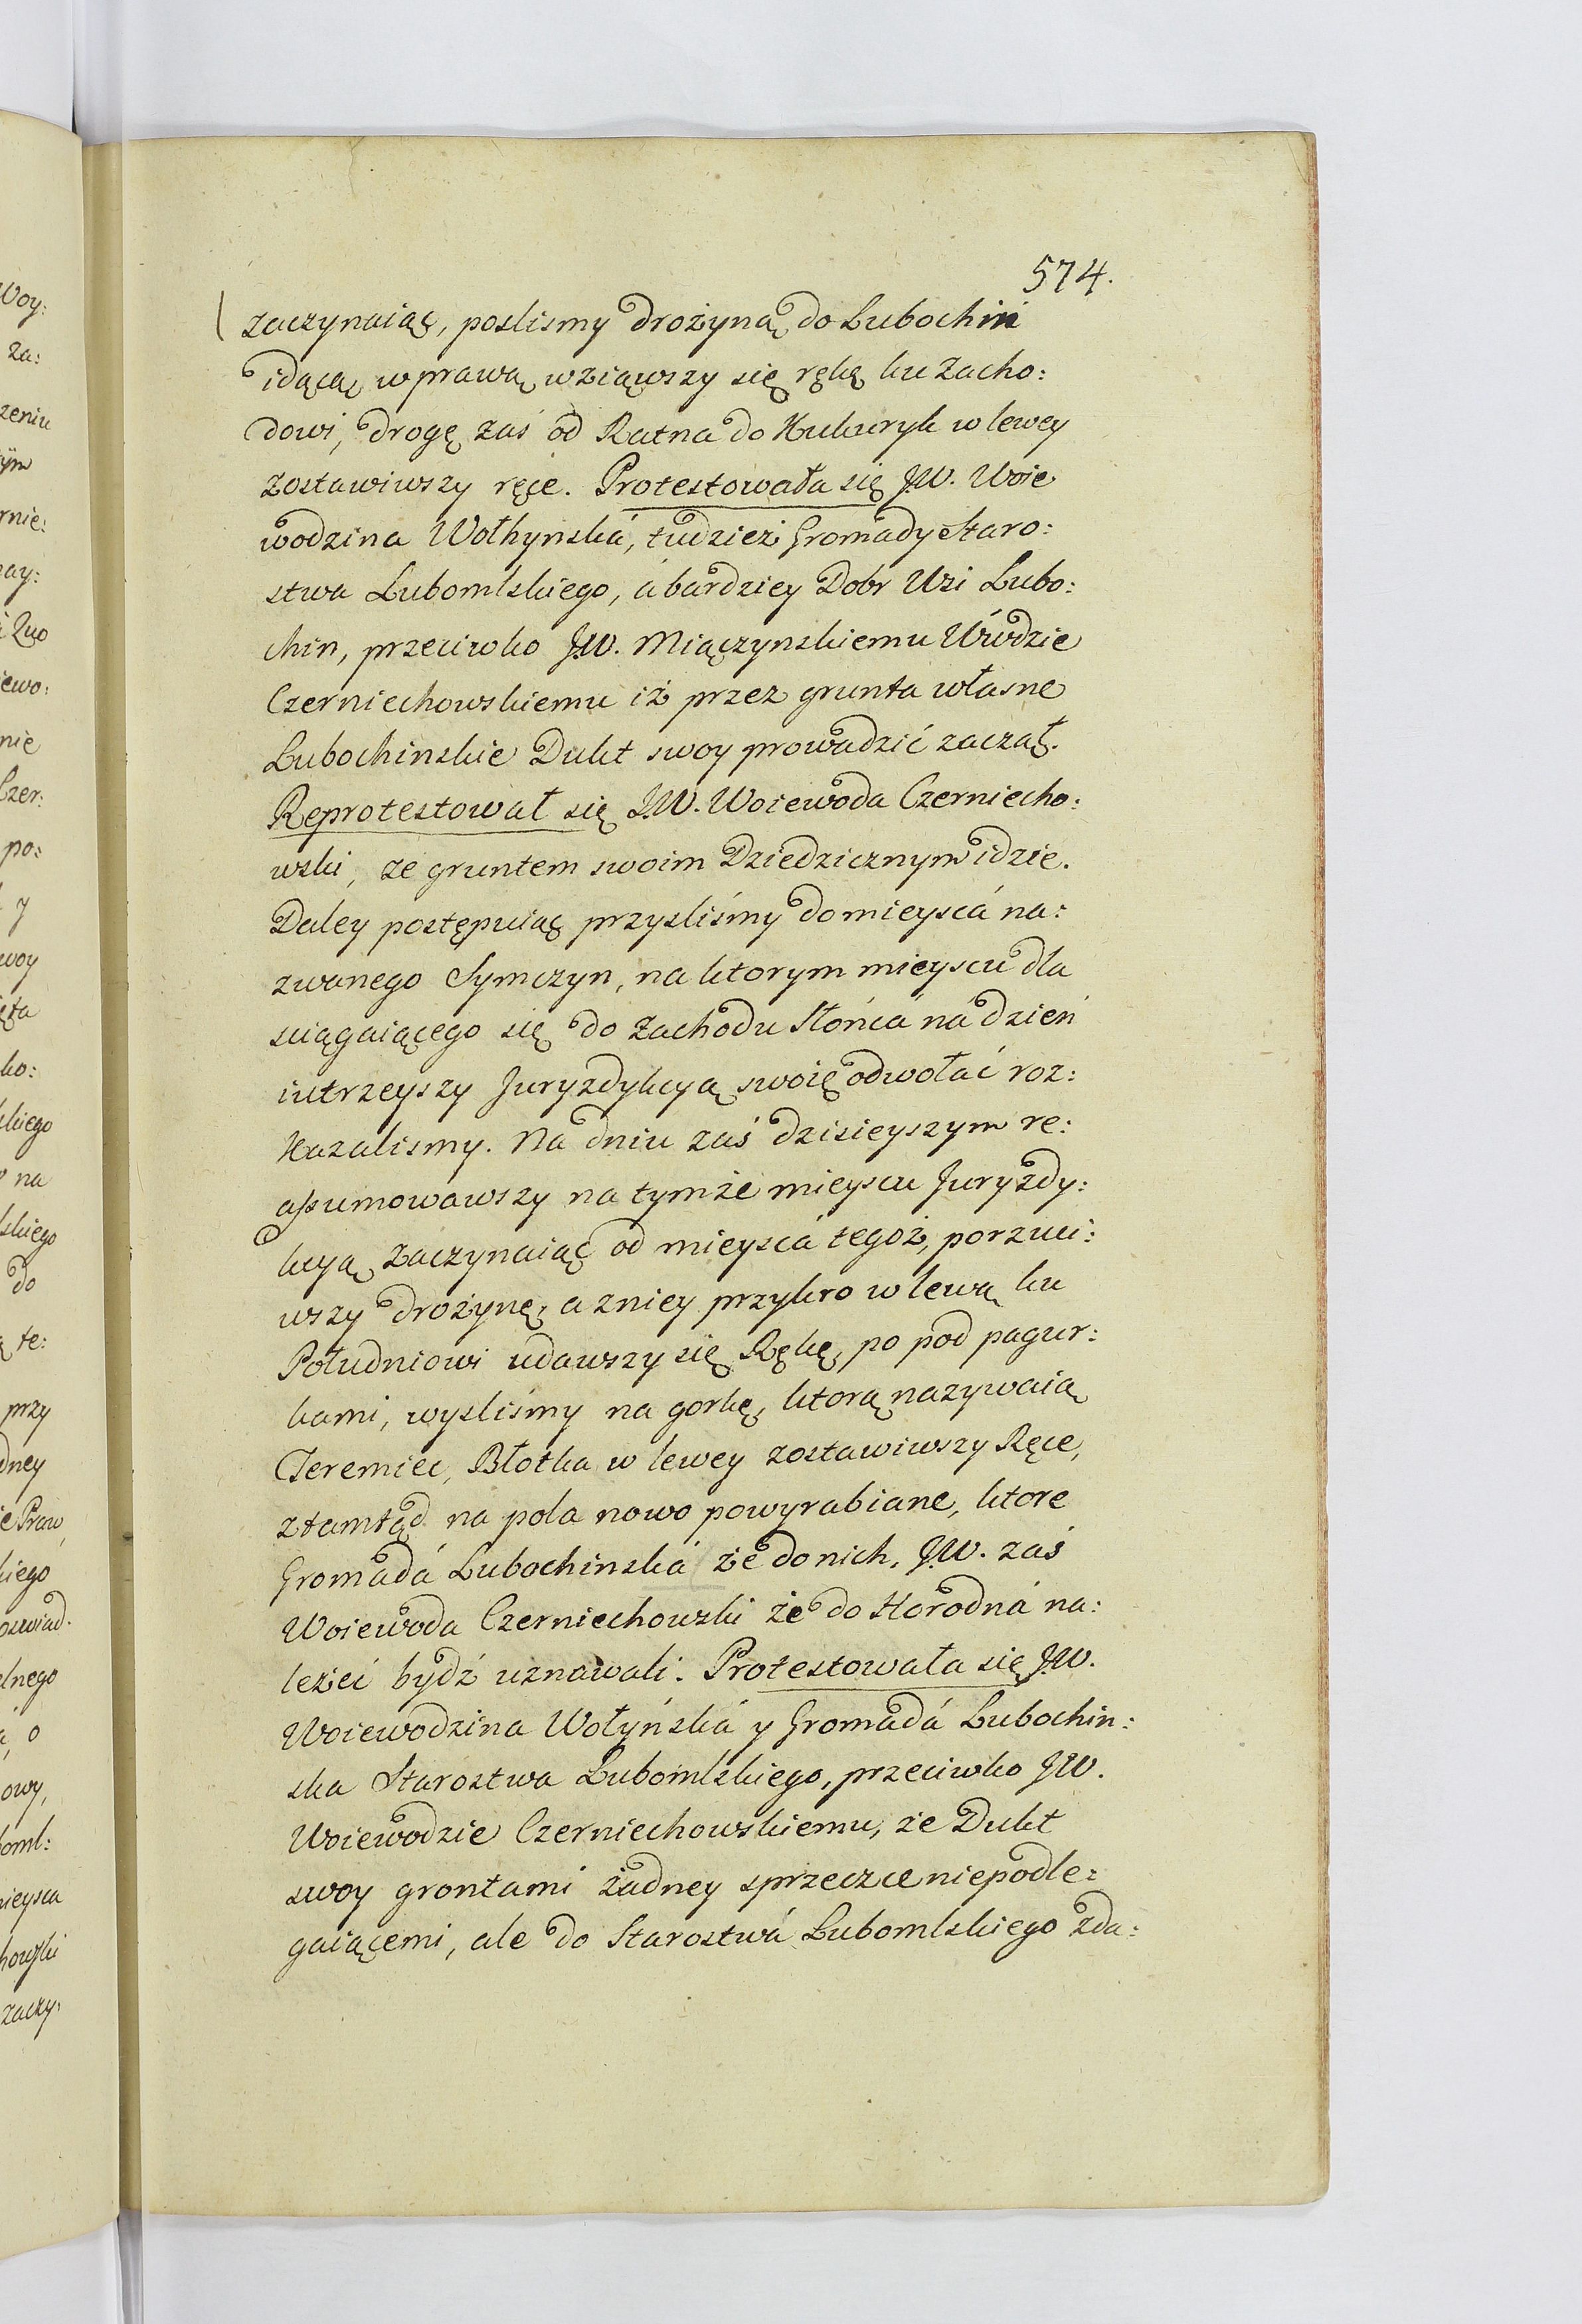 574.
zaczynaiąc, poslismy drożyną do Lubochin
idącą, w prawą wziąwszy się rękę ku zacho:
dowi, drogę zaś od Ratna do Kukuryk w lewey
zostawiwszy ręce. Protestowała się J.W. Woie
wodzina Wołhynská, tudzież Gromady Staro:
stwa Lubomlskiego, á bardziey Dobr Wsi Lubo:
chin, przeciwko J.W. Miączynskiemu Wwdzie
Czerniechowskiemu iż przez grunta własne
Lubochinskie Dukt swoy prowadzić zaczął.
Reprotestował się J.W. Woiewoda Czerniecho:
wski, ze gruntem swoim Dziedzicznym idzie.
Daley postępuiąc przysliśmy do mieyscá na:
zwanego Symczyn, na ktorym mieyscu dla
sciągaiącego się do Zachodu Słońcá ná dzień
iutrzeyszy Juryzdykcyą swoię odwołać roz:
kazalismy. Na dniu zaś dzisieyszym re:
assumowawszy na tymże mieyscu Juryzdy:
kcyą, zaczynaiąc od mieyscá tegoż, porzuci:
wszy drożynę, a zniey przykro w lewą ku
Południowi udawszy się Rękę, po pod pagur:
kami, wysliśmy na gorkę, ktorą nazywaią
Jeremiec, Błotka w lewey zostawiwszy Ręce,
ztamtąd na pola nowo powyrabiane, ktore
Gromadá Lubochinská że do nich, J.W. zaś
Woiewoda Czerniechowski że do Horodná na:
leżeć bydź uznawali. Protestowała się J.W.
Woiewodzina Wołyńská y Gromadá Lubochin:
ska Starostwa Lubomlskiego, przeciwko J.W.
Woiewodzie Czerniechowskiemu, że Dukt
swoy grontami żadney sprzeczce niepodle:
gaiącemi, ale do Starostwá Lubomlskiego zda: